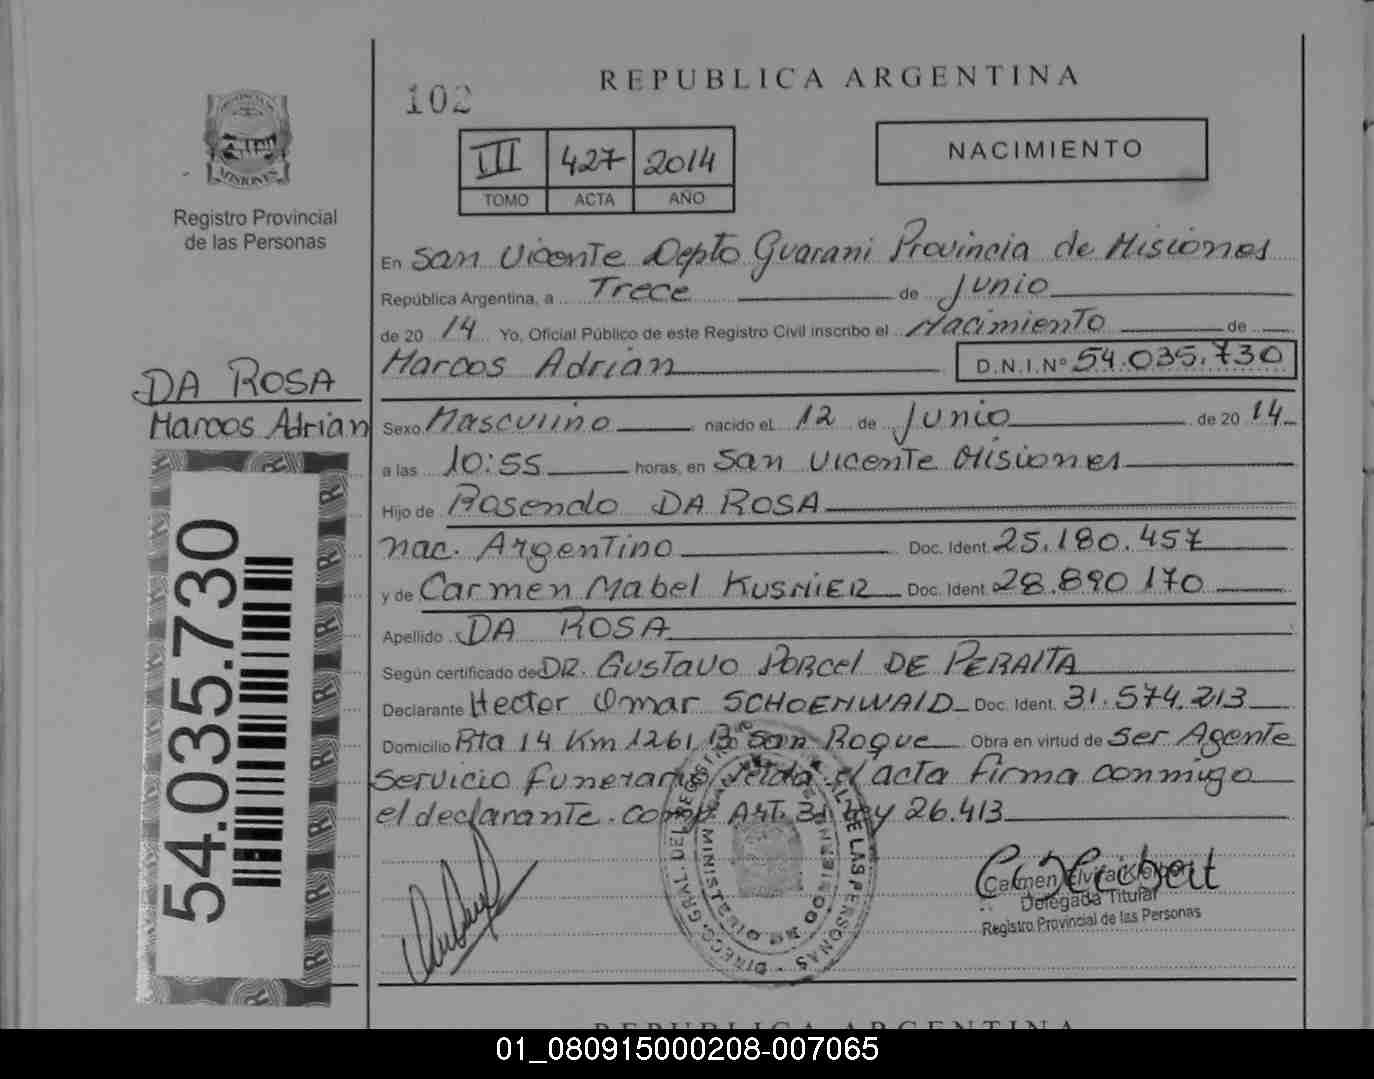 102
REPUBLICA ARGENTINA
III 427 2014
TOMO ACTA AÑO
NACIMIENTO
PROVINCIA DE
MISIONES
Registro Provincial
de las Personas
En San Vicente Depto Guarani Provincia de Misiones
República Argentina, a Trece de Junio
de 20 14 Yo, Oficial Público de este Registro Civil inscribo el Nacimiento de
Marcos Adrian D.N.I.Nº 54.035.730
DA ROSA
Marcos Adrian
Sexo Masculino nacido el 12 de Junio de 20 14
a las 10:55 horas, en San Vicente Misiones
Hijo de Rosendo DA ROSA
nac. Argentino Doc. Ident. 25.180.457
y de Carmen Mabel KUSNIER Doc. Ident. 28.890 170
Apellido DA ROSA
Según certificado de DR. Gustavo Porcel DE PERALTA
Declarante Hector Omar SCHOENWALD Doc. Ident. 31.574.213
Domicilio Rta 14 Km 1261 Bº San Roque Obra en virtud de Ser Agente
Servicio funerario leida el acta firma conmigo
el declarante. Art. 26.413
54.035.730
DIREC. GRAL. DEL REGISTRO DE LAS PERSONAS
MINISTERIO DE GOBIERNO
Carmen Elvira
Delegada Titular
Registro Provincial de las Personas
REPUBLICA ARGENTINA
01_080915000208-007065